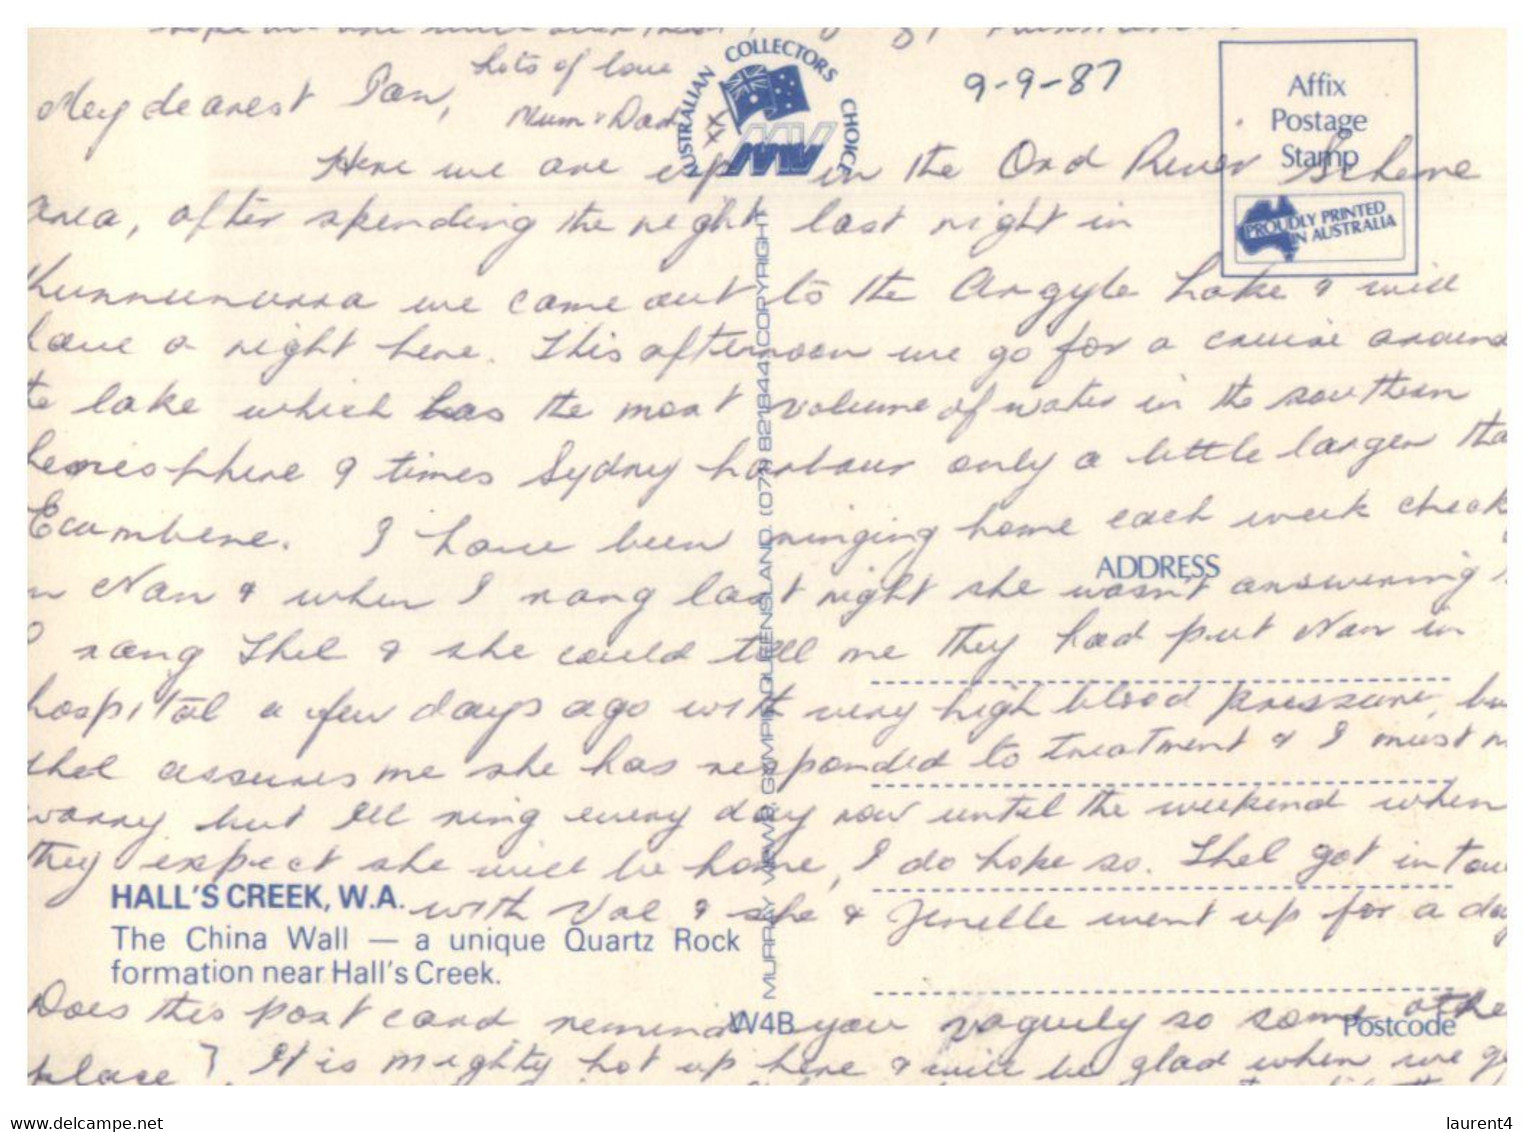 lots of love
Mum & Dad xx
9-9-87
My dearest Pam,
Here we are up in the Ord River Scheme
area, after spending the night last night in
Kunnunurra we came out to the Argyle Lake & will
have a night here. This afternoon we go for a cruise around
te lake which has the most volume of water in the southern
hemisphere 9 times Sydney harbour only a little larger tha
Ecumbene. I have been ringing home each week check
n Nan & when I rang last night she wasn't answering
I rang Thel & she could tell me they had put Nan in
hospital a few days ago with very high blood pressure, bu
thel assures me she has responded to treatment & I must n
worry but I'll ring every day now until the weekend when
they expect she will be home, I do hope so. Thel got in tou
with Val & she & Jenelle went up for a day
Does this post card remind you vaguely so some othe
place? It is mighty hot up here & will be glad when we g
AUSTRALIAN COLLECTORS CHOICE
MV
Affix
Postage
Stamp
PROUDLY PRINTED
IN AUSTRALIA
ADDRESS
HALL'S CREEK, W.A.
The China Wall — a unique Quartz Rock
formation near Hall's Creek.
MURRAY VIEWS, GYMPIE, QUEENSLAND. (071) 821844. COPYRIGHT
W4B
Postcode
www.delcampe.net
laurent4